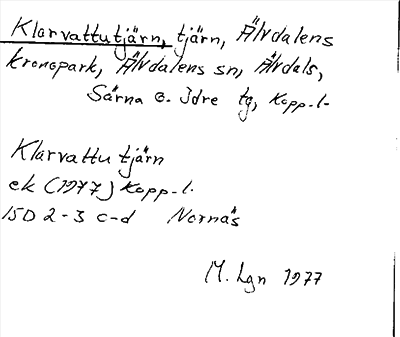 Klarvattutjärn, tjärn, Älvdalens
kronopark, Älvdalens sn, Älvdals,
Särna o. Idre tg, Kopp. l.
Klarvattutjärn
ek (1977) Kopp. l.
15D 2-3 c-d Nornäs
M. Lgn 1977